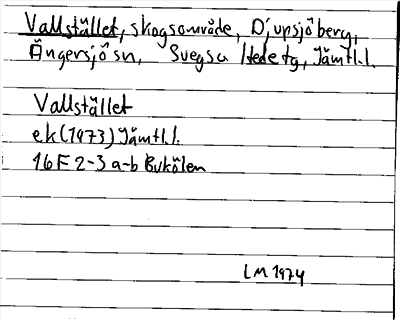 Vallstället, skogsområde, Djupsjöberg,
Ängersjö sn, Svegs o Hede tg, Jämtl.l.
Vallstället
ek (1973) Jämtl.l.
16F 2-3 a-b Bukölen
LM 1974